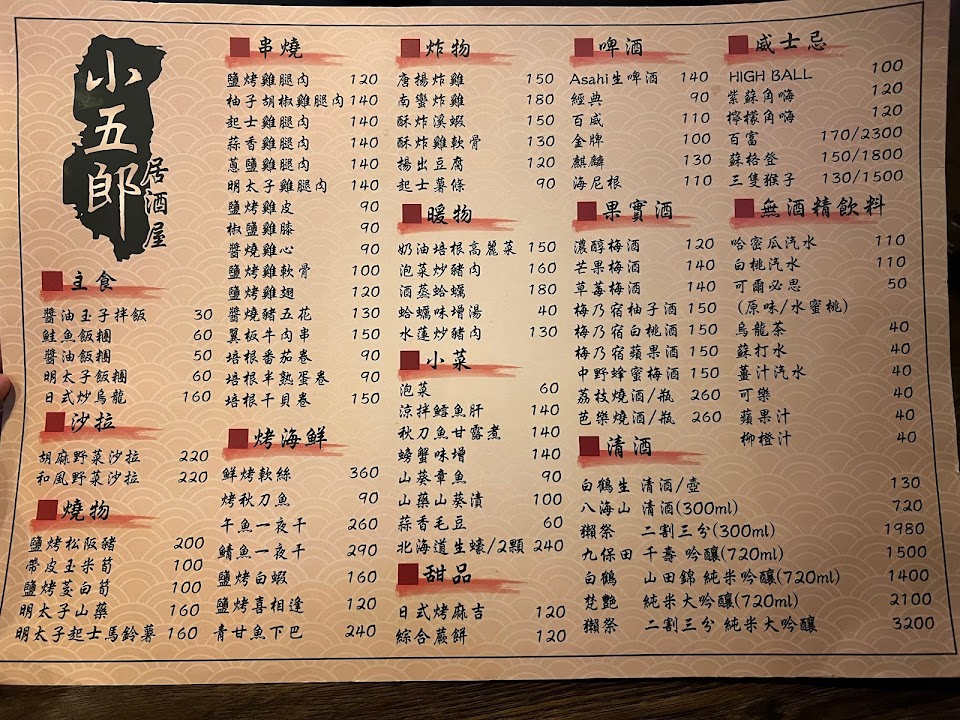 小五郎
居酒屋
主食
醬油玉子拌飯 30
鮭魚飯糰 60
醬油飯糰 50
明太子飯糰 60
日式炒烏龍 160
沙拉
胡麻野菜沙拉 220
和風野菜沙拉 220
燒物
鹽烤松阪豬 200
帶皮玉米筍 100
鹽烤茭白筍 100
明太子山藥 160
明太子起士馬鈴薯 160
串燒
鹽烤雞腿肉 120
柚子胡椒雞腿肉 140
起士雞腿肉 140
蒜香雞腿肉 140
蔥鹽雞腿肉 140
明太子雞腿肉 140
鹽烤雞皮 90
椒鹽雞膝 90
醬燒雞心 90
鹽烤雞軟骨 100
鹽烤雞翅 120
醬燒豬五花 130
翼板牛肉串 150
培根番茄卷 90
培根半熟蛋卷 90
培根干貝卷 150
烤海鮮
鮮烤軟絲 360
烤秋刀魚 90
午魚一夜干 260
鯖魚一夜干 290
鹽烤白蝦 160
鹽烤喜相逢 120
青甘魚下巴 240
炸物
唐揚炸雞 150
南蠻炸雞 180
酥炸溪蝦 150
酥炸雞軟骨 130
揚出豆腐 120
起士薯條 90
暖物
奶油培根高麗菜 150
泡菜炒豬肉 160
酒蒸蛤蠣 180
蛤蠣味增湯 40
水蓮炒豬肉 130
小菜
泡菜 60
涼拌鱈魚肝 140
秋刀魚甘露煮 140
螃蟹味增 140
山葵章魚 90
山藥山葵漬 100
蒜香毛豆 60
北海道生蠔/2顆 240
甜品
日式烤麻吉 120
綜合蕨餅 120
啤酒
Asahi生啤酒 140
經典 90
百威 110
金牌 100
麒麟 130
海尼根 110
果實酒
濃醇梅酒 120
芒果梅酒 140
草莓梅酒 140
梅乃宿柚子酒 150
梅乃宿白桃酒 150
梅乃宿蘋果酒 150
中野蜂蜜梅酒 150
荔枝燒酒/瓶 260
芭樂燒酒/瓶 260
威士忌
HIGH BALL 100
紫蘇角嗨 120
檸檬角嗨 120
百富 170/2300
蘇格登 150/1800
三隻猴子 130/1500
無酒精飲料
哈密瓜汽水 110
白桃汽水 110
可爾必思 50
(原味/水蜜桃)
烏龍茶 40
蘇打水 40
薑汁汽水 40
可樂 40
蘋果汁 40
柳橙汁 40
清酒
白鶴生 清酒/壺 130
八海山 清酒(300ml) 720
獺祭 二割三分(300ml) 1980
九保田 千壽 吟釀(720ml) 1500
白鶴 山田錦 純米吟釀(720ml) 1400
梵艷 純米大吟釀(720ml) 2100
獺祭 二割三分 純米大吟釀 3200